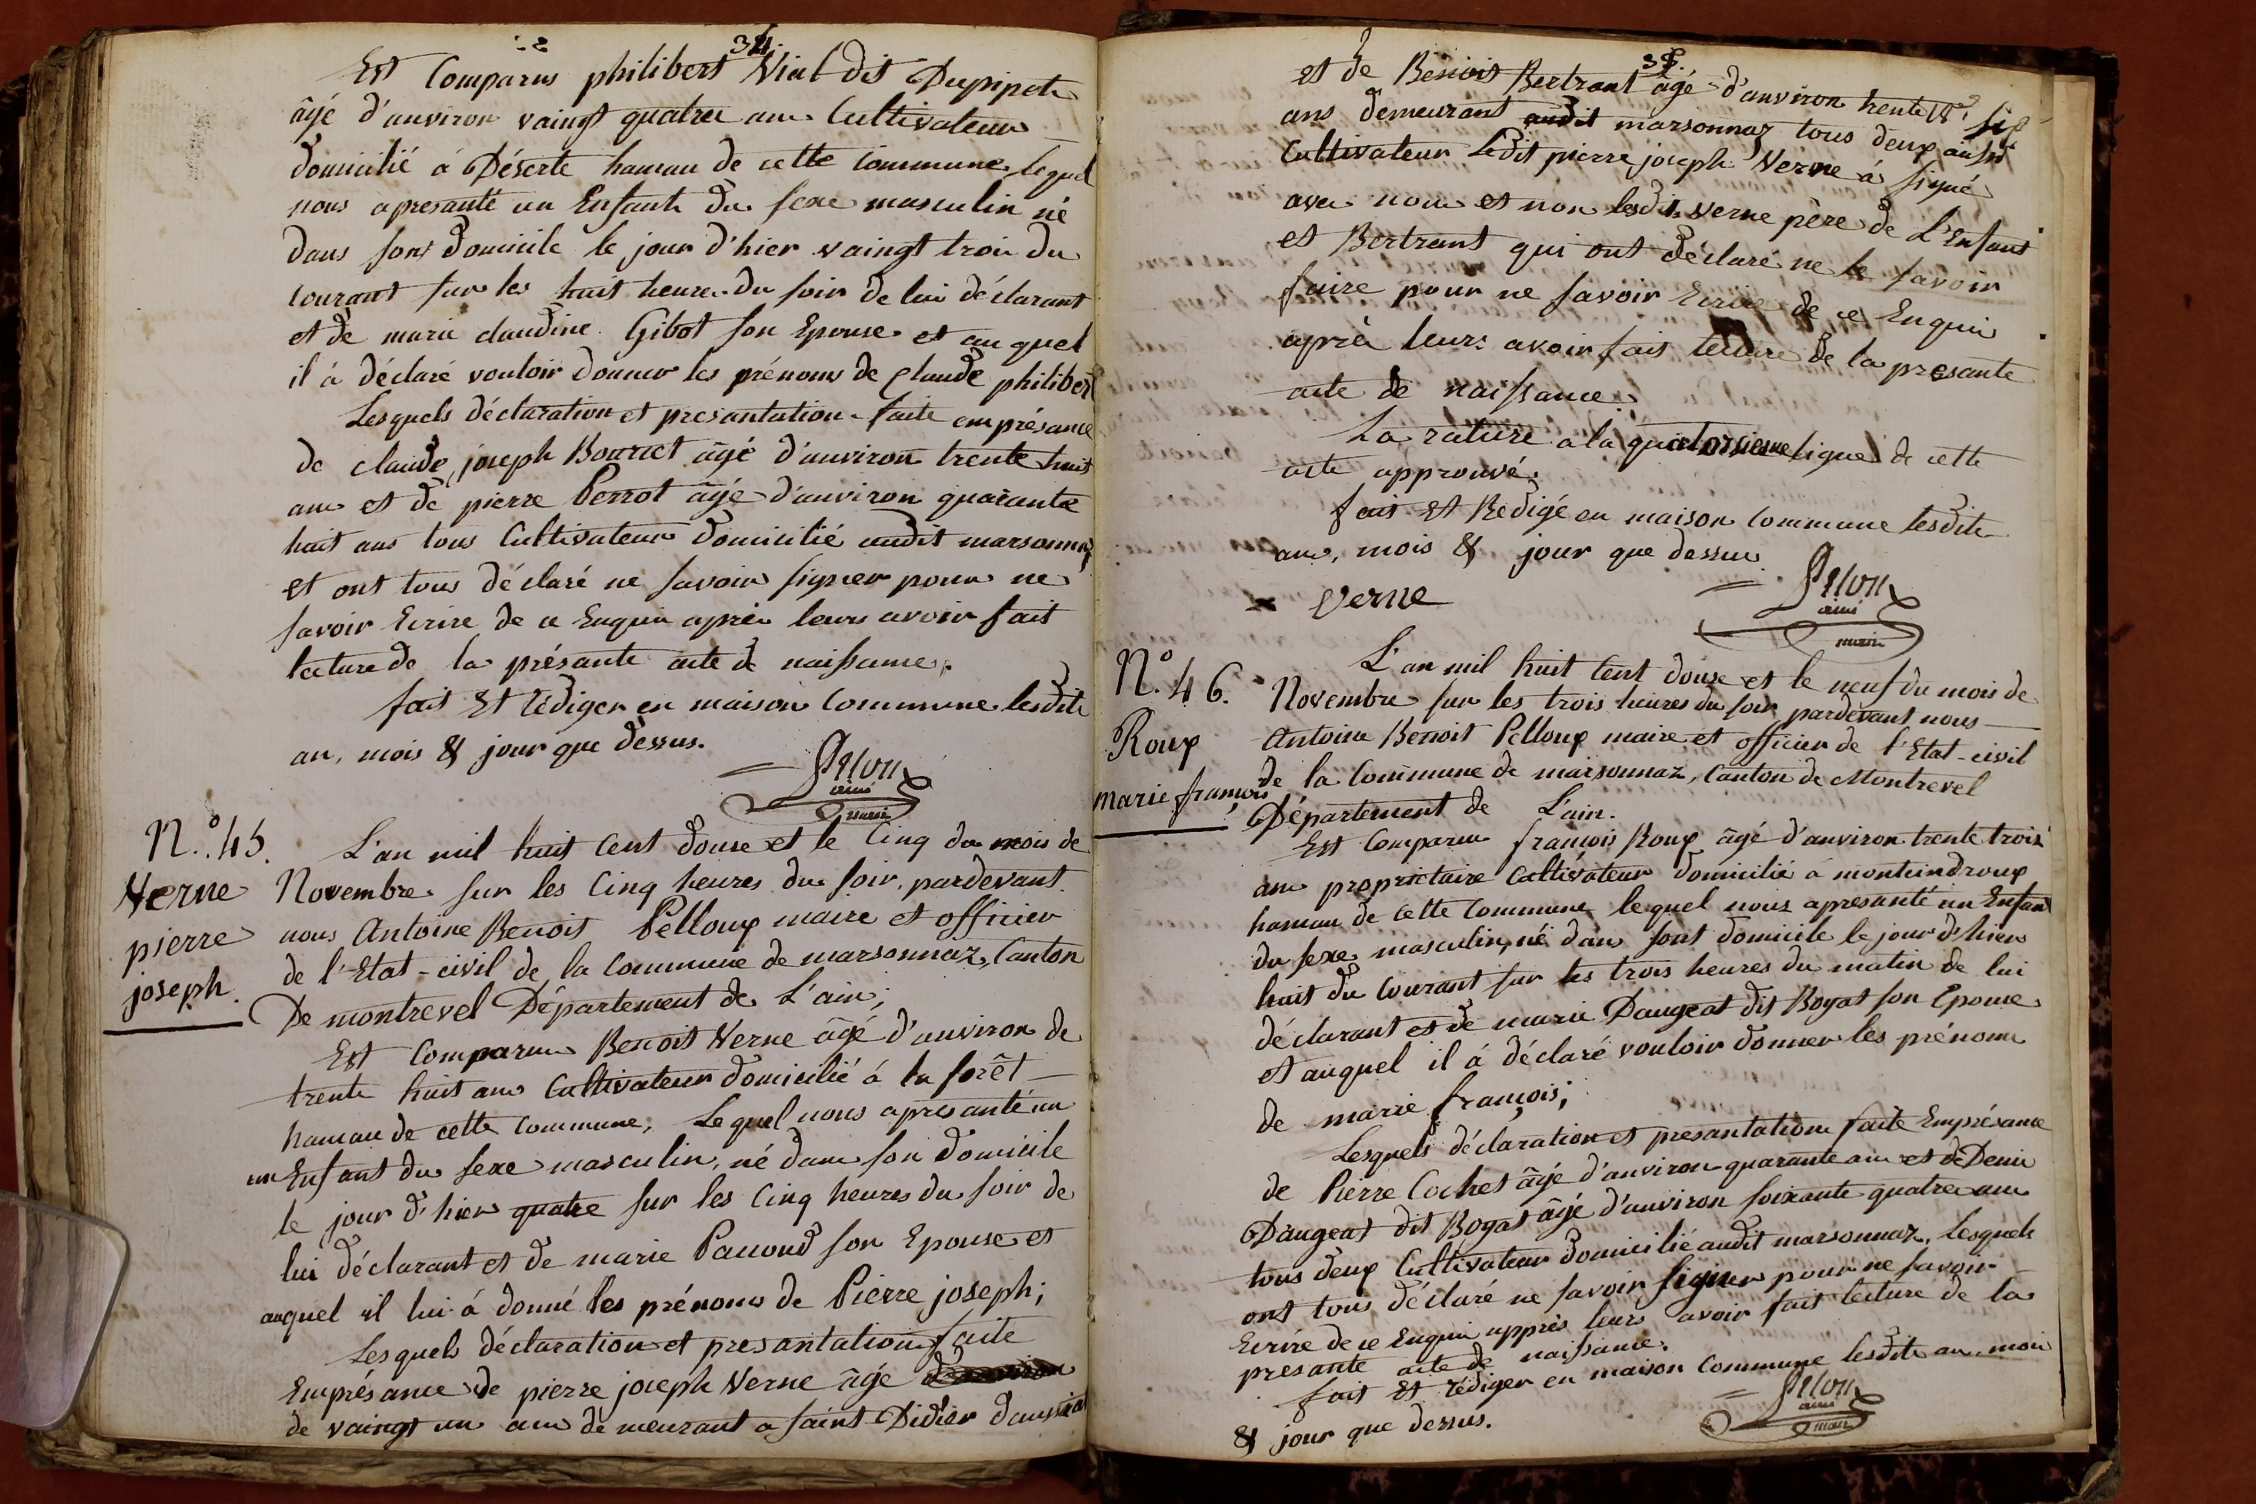 34.
Est Comparus philibert Vial dit Dupipet
âgé d'anviron vaingt quatre ans Cultivateur
domicilié á Déserte hamau de cette Commune, lequel
nous apresanté un Enfant du sexe masculin né
dans sont domicile le jour d'hier vaingt trois du
courant sur les huit heures du soir de lui déclarant
et de marie claudine Gibot son Epouse et au quel
il á déclaré vouloir donner les prénoms de Claude philibert
Lesquels déclaration et presantation faite emprésance
de claude joseph Bourcet âgé d'anviron trente huit
ans et de pierre Perrot âgé d'anviron quarante
huit ans tous Cultivateur domicilié audit marsonnaz
et ont tous déclaré ne savoir signer pour ne
savoir Ecrire de ce Enquis aprés leurs avoir fait
lecture de la présante acte de naissance.
fait Et rédiger en maison Commune lesdits
an, mois & jour que dessus.
Pelloux
ainé
maire
N.º 45.
Verne
pierre
joseph.
L'an mil huit Cent douse et le Cinq du mois de
Novembre sur les Cinq heures du soir, pardevant
nous Antoine Benoit Pelloux maire et officier
de l'Etat-civil de la Commune de marsonnaz, Canton
De montrevel Département de L'ain;
Est Comparus Benoit Verne âgé d'anviron de
trente huit ans Cultivateur domicilié á la forêt
hamau de cette Commune, Lequel nous apresanté un
un Enfant du sexe masculin, né dans son domicile
le jour d'hier quatre sur les Cinq heures du soir de
lui déclarant et de marie Pacoud son Epouse et
auquel il lui á donné les prénoms de Pierre joseph;
Lesquels déclaration et presantation faite
Emprésance de pierre joseph Verne âgé
de vaingt un ans demeurant a saint Didier
35.
et de Benoit Bertrant âgé d'anviron trente
ans demeurant audit marsonnaz tous deux aussi
Cultivateur Ledit pierre joseph Verne á signé
avec nous et non lesdits Verne père de L'Enfant
et Bertrant qui ont déclaré ne le savoir
faire pour ne savoir Ecrire de ce Enquis
aprés leurs avoir fait lecture de la presante
acte de naissance.
La rature a la quatorsieme ligne de cette
acte approuvé.
fait et Redigé en maison Commune lesdits
ans, mois & jour que dessus
Verne
Pelloux
ainé
maire
N.º 46.
Roux
marie françois
L'an mil huit Cent douse et le neuf du mois de
Novembre sur les trois heures du soir pardevant nous
Antoine Benoit Pelloux maire et officier de l'Etat-civil
de la Commune de marsonnaz, Canton de Montrevel
Département de L'ain.
Est Comparus françois Roux âgé d'anviron trente trois
ans proprietaire Cultivateur domicilié á monteindroux
hamau de cette Commune lequel nous apresanté un Enfant
du sexe masculin, né dans sont domicile le jour d'hier
huit du Courant sur les trois heures du matin de lui
déclarant et de marie Daugeat dit Boyat son Epouse
et auquel il á déclaré vouloir donner les prénoms
de marie françois;
Lesquels déclaration et presantation faite Emprésance
de Pierre Cochet âgé d'anviron quarante ans et de Denis
Daugeat dit Boyat âgé d'anviron soixante quatre ans
tous deux Cultivateur domicilié audit marsonnaz, Lesquels
ont tous déclaré ne savoir signer pour ne savoir
Ecrire de ce Enquis apprés leurs avoir fait lecture de la
presante acte de naissance.
fait Et rédiger en maison Commune lesdits an, mois
& jour que dessus.
Pelloux
ainé
maire